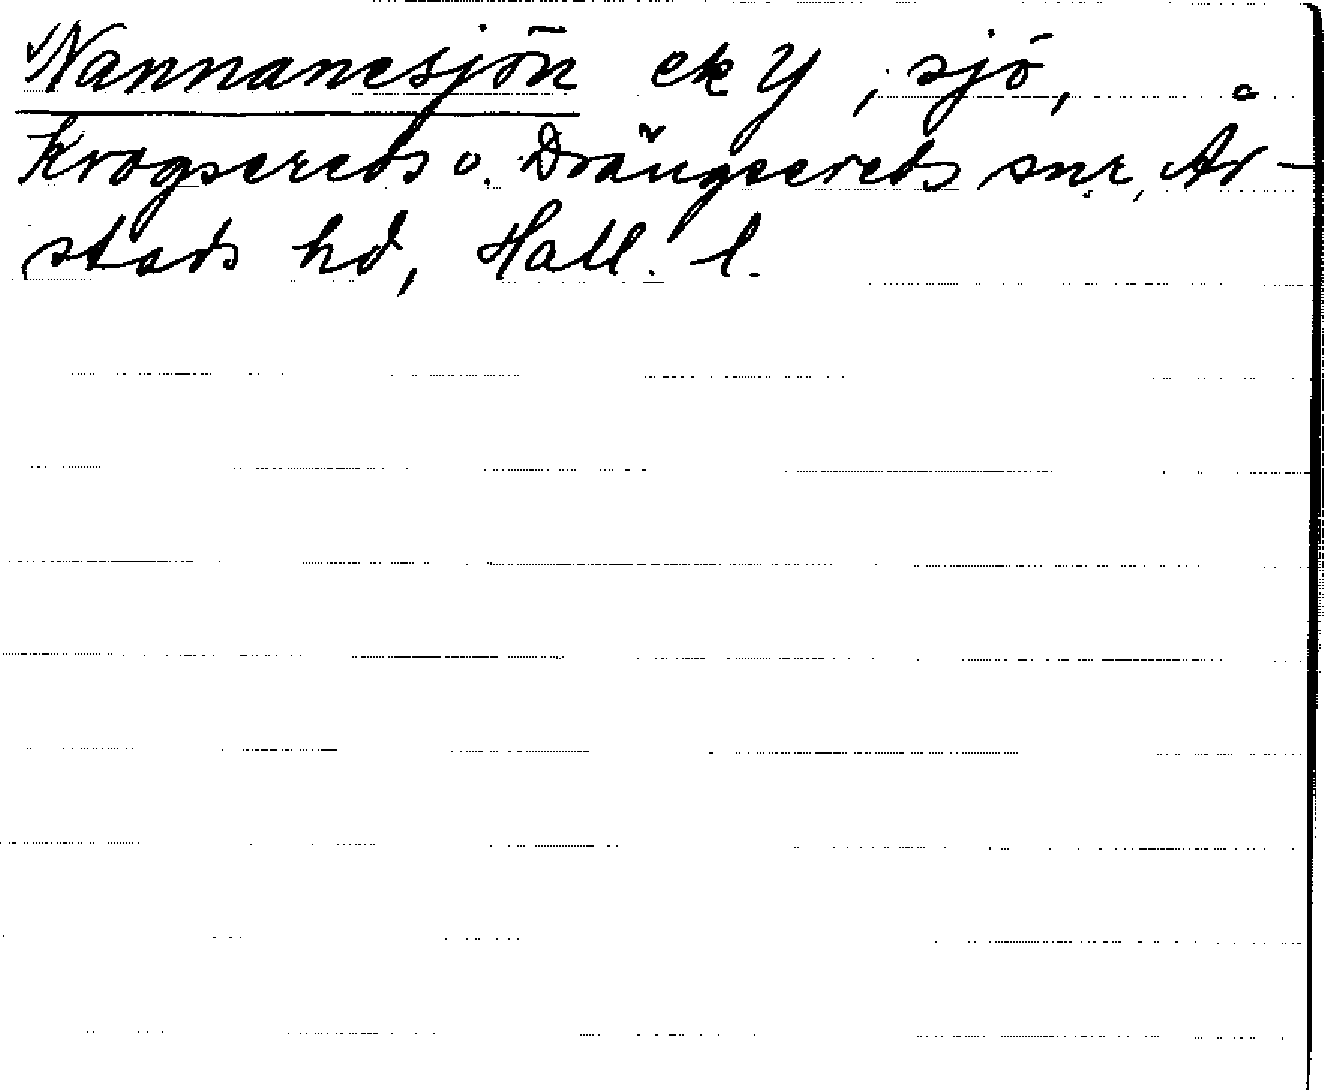 Nannanesjön ek Y, sjö,
Krogsereds o. Drängsereds snr, År-
stads hd, Hall. l.